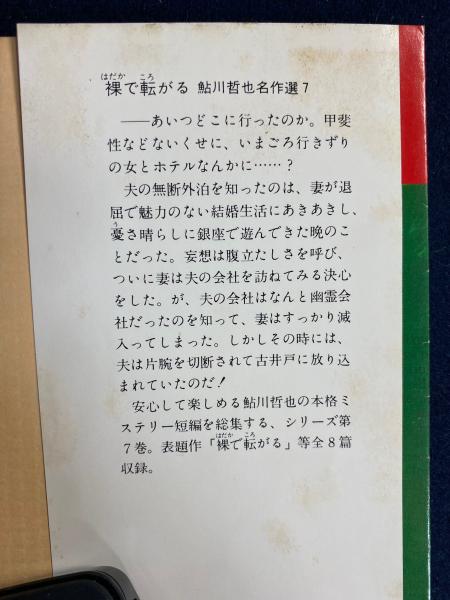 裸で転がる 鮎川哲也名作選7
――あいつどこに行ったのか。甲斐
性などないくせに、いまごろ行きずり
の女とホテルなんかに……？
夫の無断外泊を知ったのは、妻が退
屈で魅力のない結婚生活にあきあきし、
憂さ晴らしに銀座で遊んできた晩のこ
とだった。妄想は腹立たしさを呼び、
ついに妻は夫の会社を訪ねてみる決心
をした。が、夫の会社はなんと幽霊会
社だったのを知って、妻はすっかり滅
入ってしまった。しかしその時には、
夫は片腕を切断されて古井戸に放り込
まれていたのだ！
安心して楽しめる鮎川哲也の本格ミ
ステリー短編を総集する、シリーズ第
7巻。表題作「裸で転がる」等全8篇
収録。